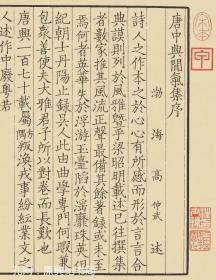 唐中興閒氣集序
渤海高仲武述
詩人之作本諸於心心有所感而形於言言合
典謨則列於風雅暨乎梁昭明載述已往撰集
者數家推其風流正聲最備其餘著錄或未至
焉何者英華失於浮游玉臺陷於淫靡珠英但
紀朝士丹陽止錄吳人此由曲學專門何暇兼
包衆善使夫大雅君子所以對卷而長歎也
唐興一百七十載屬方隅叛渙戎事紛綸業文之
人述作中廢粵若